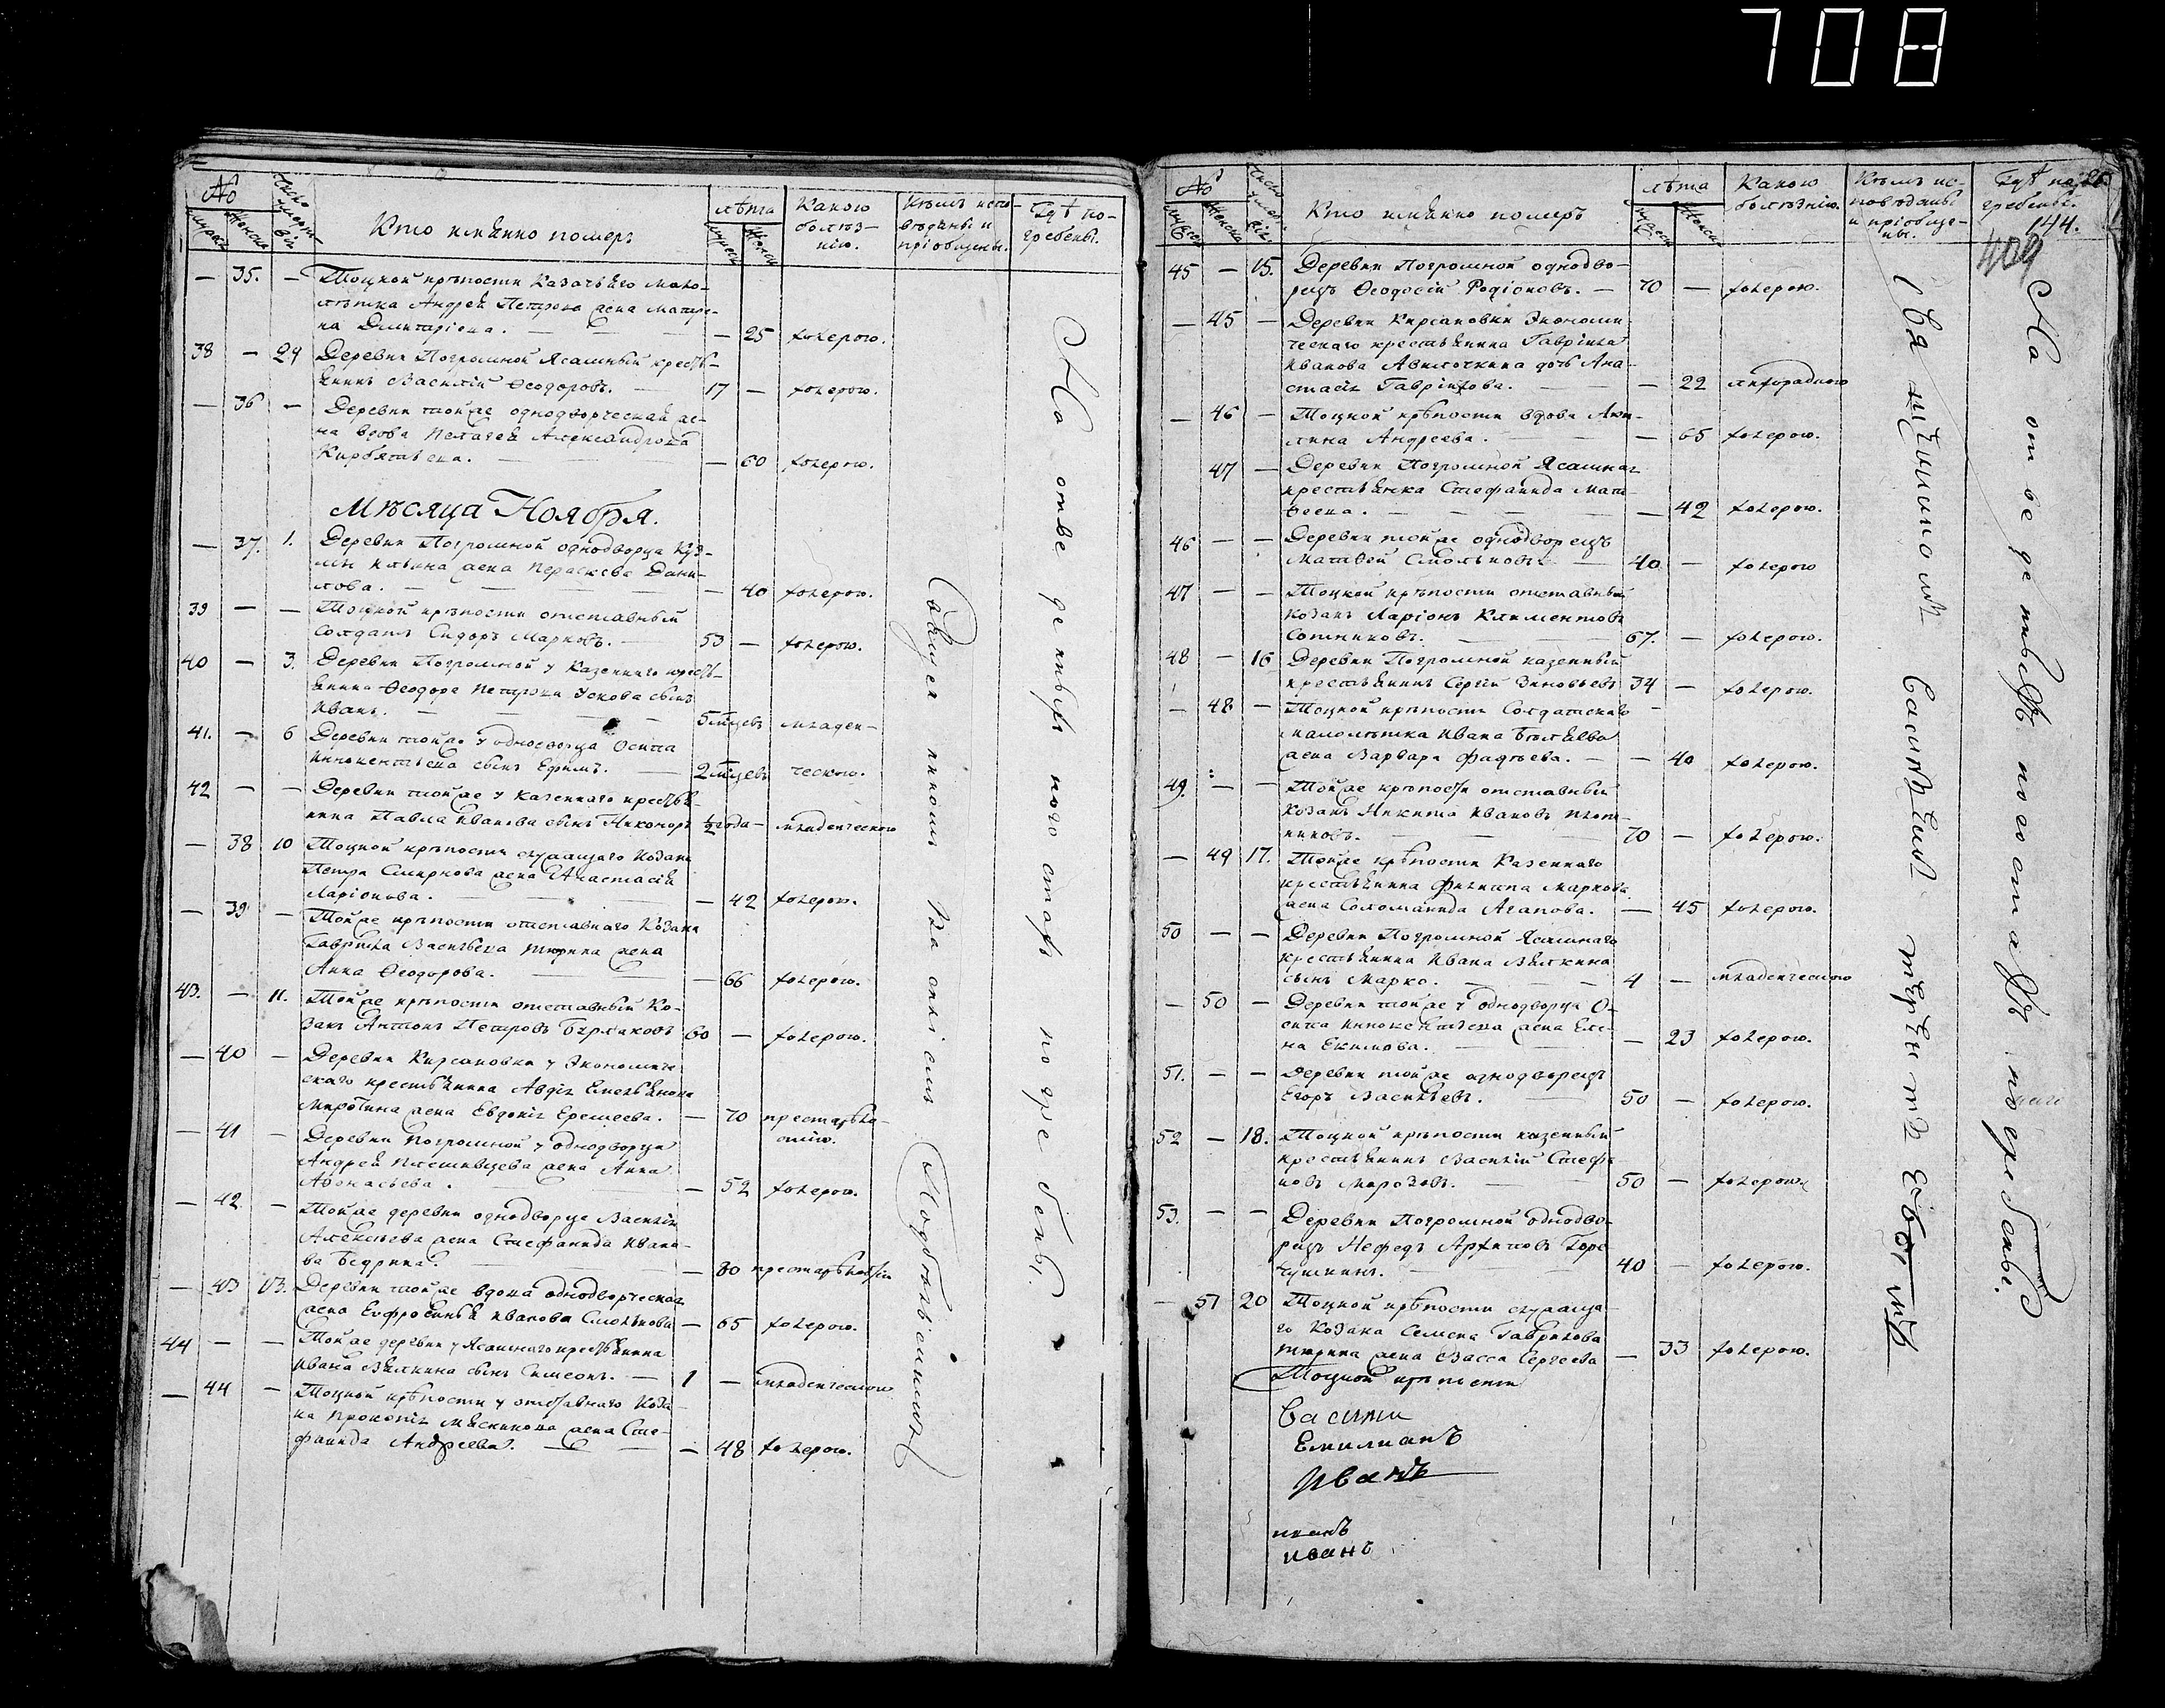 708
№
мужеск
женска
число умерт-вiи
Кто имянно померъ
лѣта
мужеск
женск
Какою болѣз-нiю.
Кѣмъ испо-вѣданы и прiобщены.
Гдѣ по-гребены.
— 35. — Тоцкой крѣпости Казачьяго мало-
лѣтка Андрея Петрова жена Матре-
на Димитрiева. — — 25 холерою.
38 — 29 Деревни Погромной Ясашный кресть-
янинъ Василiй Ѳеодоровъ. 17 — холерою.
— 36 — Деревни тойже однодворческая же-
на вдова Пелагея Александрова
Кирбятьева. — — 60 холерою.
Мѣсяца Ноября.
— 37. 1. Деревни Погромной однодворца Куз-
мы Ильина жена Параскева Дани-
лова. — — 40 холерою.
39 — — Тоцкой крѣпости отставный
солдатъ Сидоръ Марковъ. — 53 — холерою.
40 — 3. Деревни Погромной у Казеннаго кресть-
янина Ѳеодора Петрова Ускова сынъ
Иванъ. — 5 мцевъ младен-
41. — 6 Деревни тойже у однодворца Осипа
Иннокентьева сынъ Ефимъ. — 2 мцевъ ческою.
42 — — Деревни тойже у Казеннаго кресть-
янина Павла Иванова сынъ Никоноръ ½ года — младенческою
— 38 10 Тоцкой крѣпости служащаго Козака
Петра Смирнова жена Анастасiя
Ларiонова. — — 42 холерою.
— 39 — Тойже крѣпости отставнаго Козака
Гаврiила Васильева Тюрина жена
Анна Ѳеодорова. — — 66 холерою.
43. — 11. Тойже крѣпости отставный Ко-
закъ Антонъ Петровъ Бурлаковъ 60 — холерою.
— 40 — Деревни Кирсановки у Экономиче
скаго крестьянина Авдiя Емельянова
Миротина жена Евдокiя Еремеева. — 70 престарѣло-
стiю.
— 41 — Деревни Погромной у однодворца
Андрея Плешивцева жена Анна
Аѳонасьева. — — 52 холерою.
— 42 — Тойже деревни однодворца Василiя
Алексѣева жена Стефанида Ивано-
ва Бедрина. — — 80 престарѣлостiю
— 43 13. Деревни тойже вдова однодворческая
жена Евфросинья Иванова Смолькова — 65 холерою.
44 — — Тойже деревни у Ясашнаго крестьянина
Ивана Вялкина сынъ Симеонъ. — 1 — младенческою
— 44 — Тоцкой крѣпости у отставнаго Коза
ка Прокопiя Мясникова жена Сте-
фанида Андреева. — — 48 холерою.
Священникомъ Василiемъ
На отведенномъ мѣстѣ погребены.
№
мужеск
женска
число умер. вiи.
Кто имянно померъ
лѣта
мужеск
женск
Какою болѣзнiю.
Кѣмъ ис-повѣданы и прiобще-ны.
Гдѣ по-гребены.
144.
409
45 — 15. Деревни Погромной однодво-
рецъ Ѳеодосiй Родiоновъ. — 70 — холерою.
— 45 — Деревни Кирсановки Экономи-
ческаго крестьянина Гаврiила
Иванова Авилочкина дочь Ана-
стасiя Гаврiилова. — — 22 лихорадкою
— 46 — Тоцкой крѣпости вдова Аки-
лина Андреева. — — 65 холерою.
47 — Деревни Погромной Ясашная
крестьянка Стефанида Мат-
веева. — — 42 холерою.
46 — — Деревни тойже однодворецъ
Матвей Смольковъ. — 40 — холерою
47 — — Тоцкой крѣпости отставный
козакъ Ларiонъ Климентовъ
Сотниковъ. 67. — холерою.
48 — 16 Деревни Погромной казенный
крестьянинъ Сергiй Зиновьевъ 34 — холерою.
— 48 — Тоцкой крѣпости Солдатскаго
малолѣтка Ивана Бѣляева
жена Варвара Фадѣева. — — 40 холерою.
49. — — Тойже крѣпости отставный
козакъ Никита Ивановъ Плот-
никовъ. 70 — холерою.
— 49 17. Тойже крѣпости Казеннаго
крестьянина Филипа Маркова
жена Соломанида Агапова. — 45 холерою.
50 — — Деревни Погромной Ясашнаго
крестьянина Ивана Вялкина
сынъ Марко. — 4 — младенческою
— 50 — Деревни тойже у однодворца О-
сипа Иннокентьева жена Еле-
на Екимова. — — 23 холерою.
51. — — Деревни тойже однодворецъ
Егоръ Васильевъ. 50 — холерою.
52 — 18. Тоцкой крѣпости казенный
крестьянинъ Василiй Стефа-
новъ Морозовъ. 50 — холерою
53. — — Деревни Погромной однодво-
рецъ Нефедъ Архиповъ Горе-
чушкинъ. — 40 — холерою.
— 51 20 Тоцкой крѣпости служаща-
го Козака Семена Гаврилова
Тюрина жена Васса Сергеева — 33 холерою.
Тоцкой крѣпости
Васили
Емилианъ
Иванъ
иванъ
иванъ
Священникомъ Василiемъ
На отведенномъ погребены.